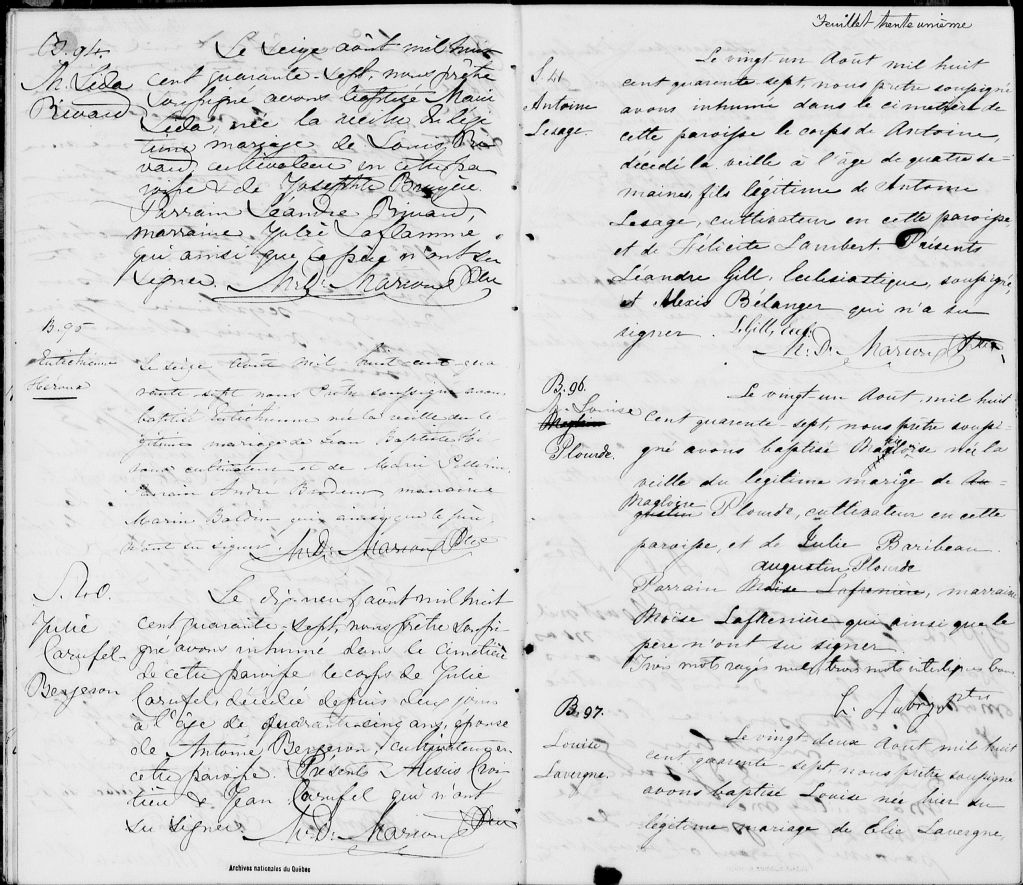 B. 94.
M. Lida
Rivard
Le seize août mil huit
cent quarante-sept, nous prêtre
soussigné avons baptisé Marie
Lida, née la veille du légi
time mariage de Louis Ri
vard cultivateur en cette pa
roisse & de Josephte Bruyere.
Parrain Léandre Rivard,
marraine Julie Laflamme,
qui ainsi que le père n'ont su
signer. M. D. Marcoux Ptre
B. 95
Heroux
Le seize Août mil huit cent qua
rante-sept nous Prêtre soussigné avons
baptisé né la vieille du lé
gitime mariage de Jean Baptiste Hé
roux cultivateur et de Marie Pellerin.
Parrain André Brodeur marraine
Marie qui ainsy que le père
n'ont su signer. M. D. Marcoux Ptre
S. 40.
Julie
Carufel
Bergeron
Le dix-neuf août mil huit
cent quarante-sept, nous prêtre soussi-
gné avons inhumé dans le cimetière
de cette paroisse le corps de Julie
Carufel, décédée depuis deux jours
à l'age de quarante-cinq ans, épouse
de Antoine Bergeron, cultivateur en
cette paroisse. Présents Alexis
& Jean Carufel qui n'ont
su signer M. D. Marcoux Ptre
Archives nationales du Québec
Feuillet trente unième
S. 41
Antoine
Lesage
Le vingt un Août mil huit
cent quarante sept, nous prêtre soussigné
avons inhumé dans le cimetière de
cette paroisse le corps de Antoine,
décédé la veille à l'âge de quatre se-
maines, fils légitime de Antoine
Lesage, cultivateur en cette paroisse
et de Félicité Lambert. Présents
Léandre Gill, Ecclésiastique, soussigné,
et Alexis Bélanger qui n'a su
signer. L. Gill, Eccl.
M. D. Marcoux Ptre
B. 96.
M. Louise
Plourde.
Le vingt un Août mil huit
cent quarante-sept, nous prêtre soussi-
gné avons baptisé née la
veille du légitime mariage de Au-
Magloire
gustin Plourde, cultivateur en cette
paroisse, et de Julie Baribeau.
augustin Plourde
Parrain Moïse Lafrenière, marraine
Moïse Lafrenière qui ainsi que le
père n'ont su signer.
Trois mots rayés nuls, trois mots interlignes bons
ptre
B. 97.
Louise
Lavergne.
Le vingt deux Août mil huit
cent quarante-sept, nous prêtre soussigné
avons baptisé Louise née hier du
légitime mariage de Elie Lavergne,